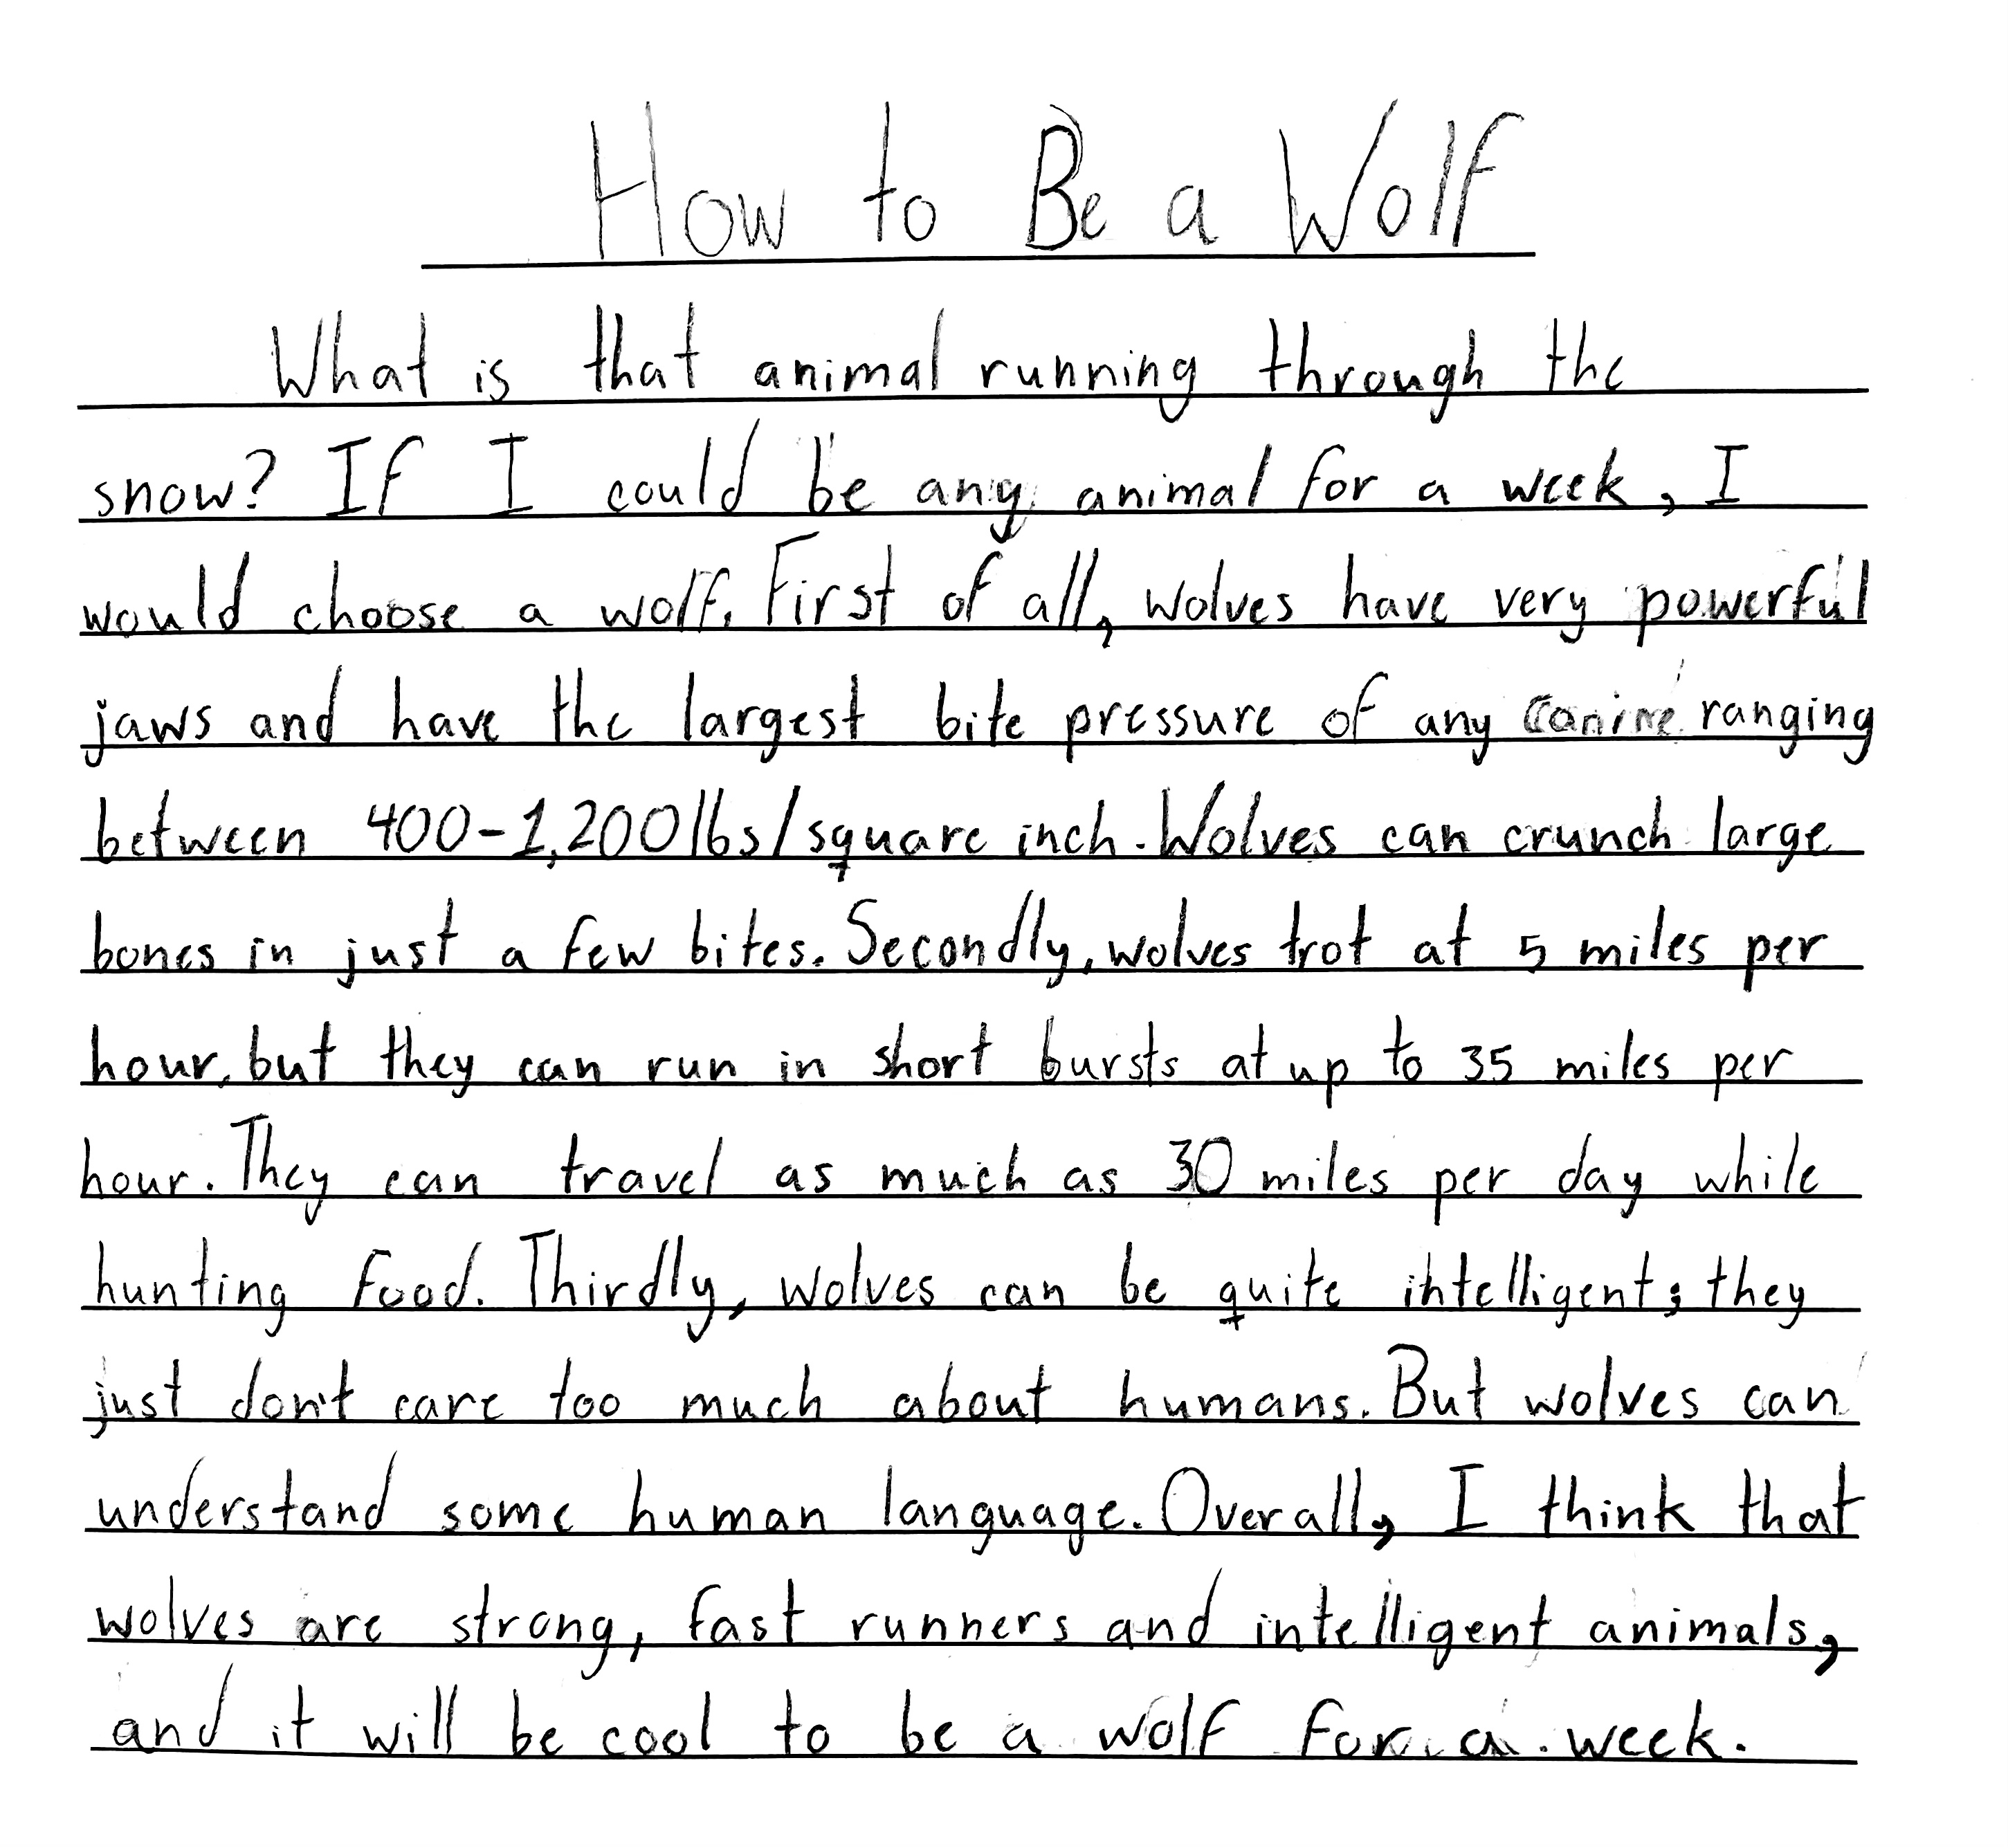 How to Be a Wolf
What is that animal running through the
snow? If I could be any animal for a week, I
would choose a wolf. First of all, wolves have very powerful
jaws and have the largest bite pressure of any canine ranging
between 400-1,200lbs/square inch. Wolves can crunch large
bones in just a few bites. Secondly, wolves trot at 5 miles per
hour, but they can run in short bursts at up to 35 miles per
hour. They can travel as much as 30 miles per day while
hunting food. Thirdly, wolves can be quite intelligent; they
just don't care too much about humans. But wolves can
understand some human language. Overall, I think that
wolves are strong, fast runners and intelligent animals,
and it will be cool to be a wolf for a week.